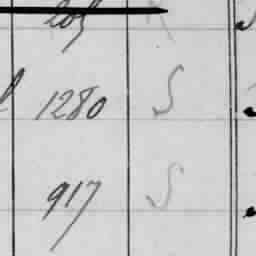 1280 S
917 S